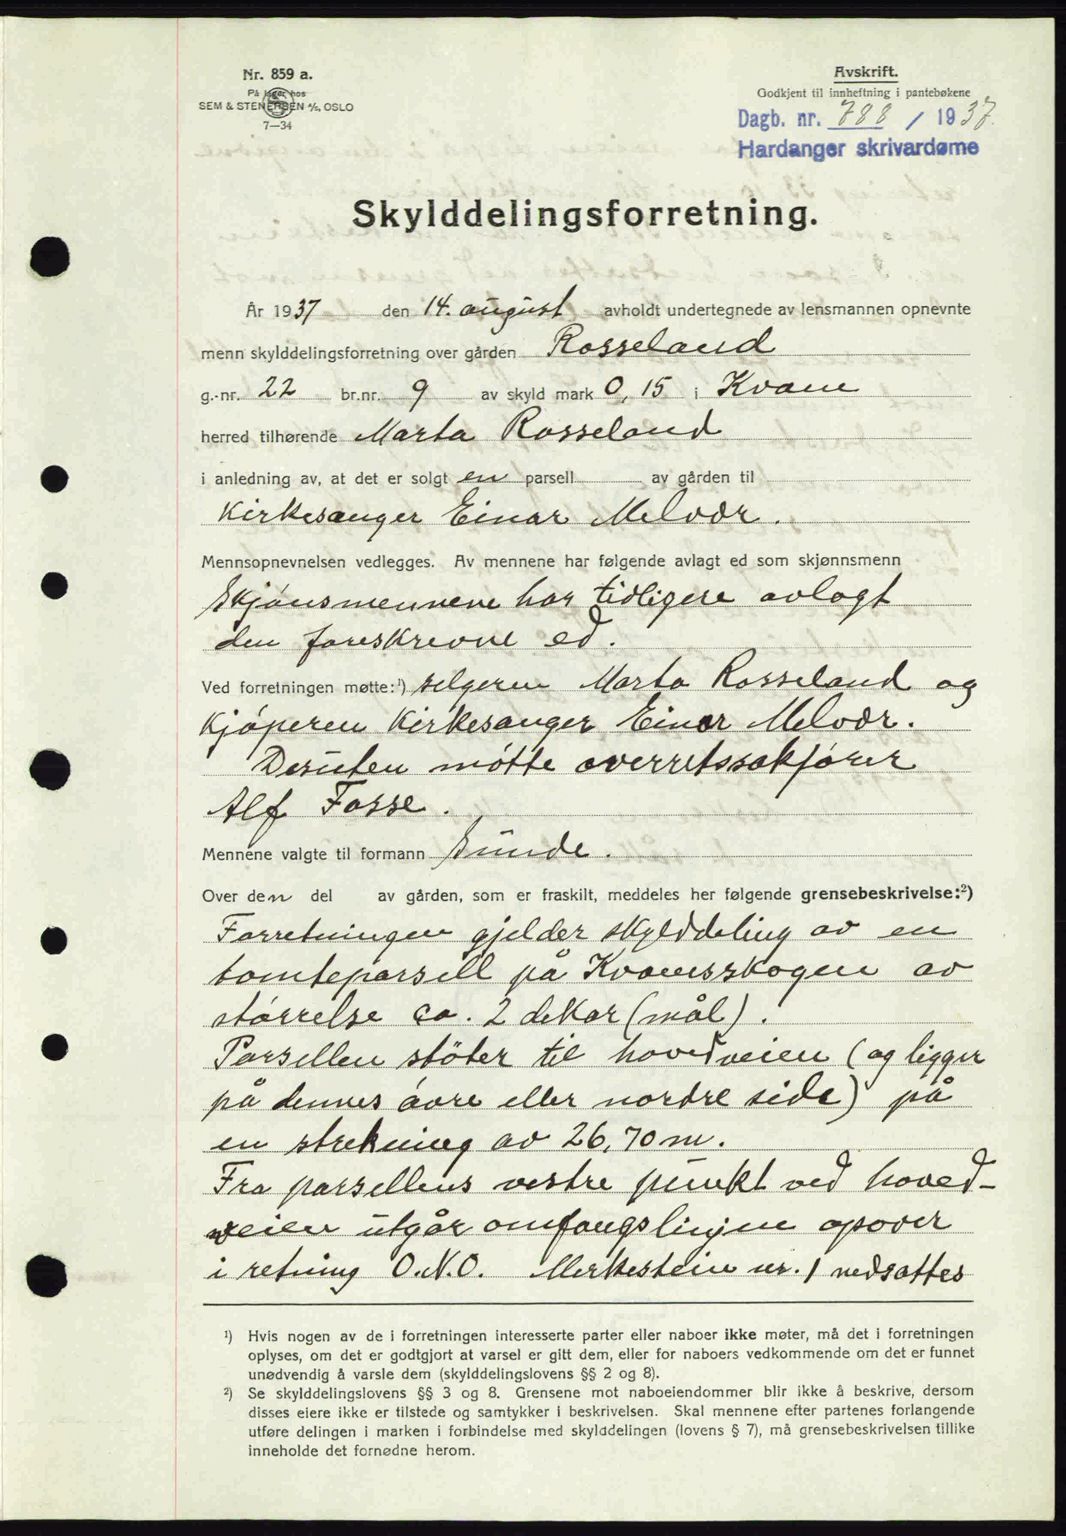 Nr. 859 a.
På lager hos
SEM & STENERSEN A/S, OSLO
7—34
Avskrift.
Godkjent til innheftning i pantebøkene
Dagb. nr. 788 / 1937.
Hardanger skrivardøme
Skylddelingsforretning.
År 1937 den 14. august avholdt undertegnede av lensmannen opnevnte
menn skylddelingsforretning over gården Rosseland
g.-nr. 22 br.nr. 9 av skyld mark 0,15 i Kvam
herred tilhørende Marta Rosseland
i anledning av, at det er solgt en parsell av gården til
Kirkesanger Einar Melvær.
Mennsopnevnelsen vedlegges. Av mennene har følgende avlagt ed som skjønnsmenn
Skjønsmennene har tidligere avlagt
den foreskrevne ed.
Ved forretningen møtte:¹) selgeren Marta Rosseland og
kjøperen Kirkesanger Einar Melvær.
Desuten møtte overretssakfører
Alf Fosse.
Mennene valgte til formann Sunde.
Over den del av gården, som er fraskilt, meddeles her følgende grensebeskrivelse:²)
Forretningen gjelder skylddeling av en
tomteparsell på Kvamsskogen av
størrelse ca. 2 dekar (mål).
Parsellen støter til hovedveien (og ligger
på dennes øvre eller nordre side) på
en strekning av 26,70 m.
Fra parsellens vestre punkt ved hoved-
veien utgår omfangslinjen opover
i retning O.N.O. Merkestein nr. 1 nedsattes
¹) Hvis nogen av de i forretningen interesserte parter eller naboer ikke møter, må det i forretningen
oplyses, om det er godtgjort at varsel er gitt dem, eller for naboers vedkommende om det er funnet
unødvendig å varsle dem (skylddelingslovens §§ 2 og 8).
²) Se skylddelingslovens §§ 3 og 8. Grensene mot naboeiendommer blir ikke å beskrive, dersom
disses eiere ikke er tilstede og samtykker i beskrivelsen. Skal mennene efter partenes forlangende
utføre delingen i marken i forbindelse med skylddelingen (lovens § 7), må grensebeskrivelsen tillike
inneholde det fornødne herom.